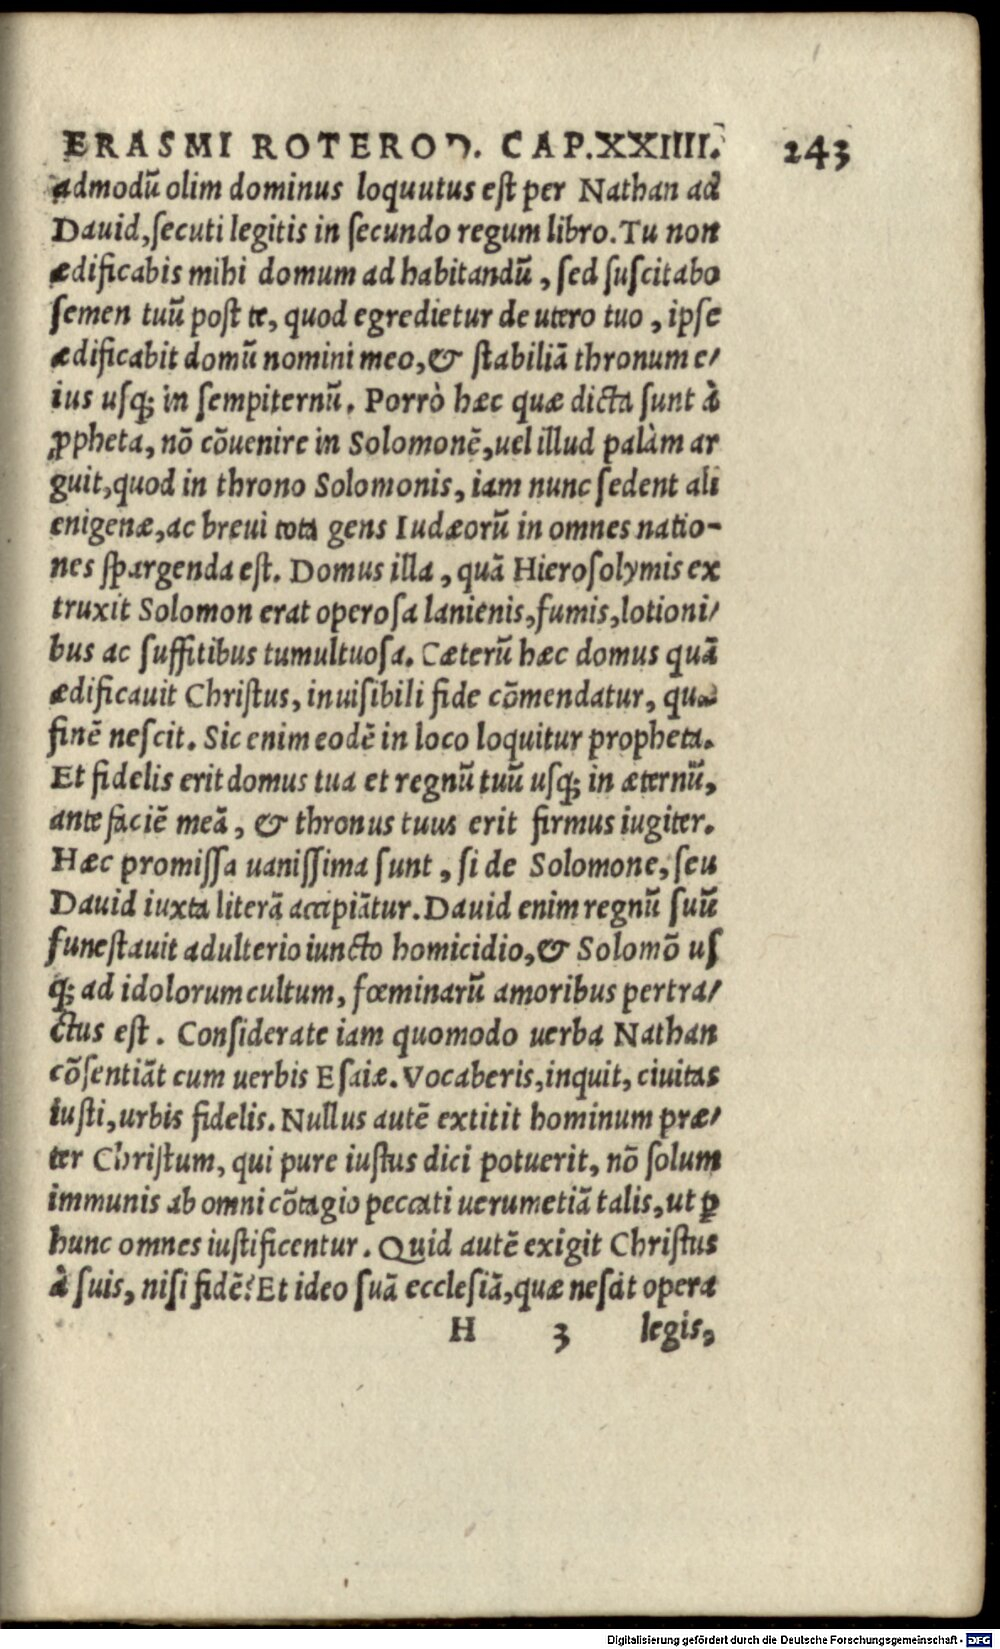 ERASMI ROTEROD. CAP.XXIIII. 243
admodū olim dominus loquutus est per Nathan ad
Dauid, secuti legitis in secundo regum libro. Tu non
ædificabis mihi domum ad habitandū, sed suscitabo
semen tuū post te, quod egredietur de utero tuo, ipse
ædificabit domū nomini meo, & stabiliā thronum e/
ius usq; in sempiternū. Porrò hæc quæ dicta sunt à
ꝓpheta, nō cōuenire in Solomonē, uel illud palàm ar
guit, quod in throno Solomonis, iam nunc sedent ali
enigenæ, ac breui tota gens Iudæorū in omnes natio-
nes spargenda est. Domus illa, quā Hierosolymis ex
truxit Solomon erat operosa lanienis, fumis, lotioni/
bus ac suffitibus tumultuosa. Cæterū hæc domus quā
ædificauit Christus, inuisibili fide cōmendatur, quæ
finē nescit. Sic enim eodē in loco loquitur propheta.
Et fidelis erit domus tua et regnū tuū usq; in æternū,
ante faciē meā, & thronus tuus erit firmus iugiter.
Hæc promissa uanissima sunt, si de Solomone, seu
Dauid iuxta literā accipiātur. Dauid enim regnū suū
funestauit adulterio iuncto homicidio, & Solomō us
q; ad idolorum cultum, fœminarū amoribus pertra/
ctus est. Considerate iam quomodo uerba Nathan
cōsentiāt cum uerbis Esaiæ. Vocaberis, inquit, ciuitas
iusti, urbis fidelis. Nullus autē extitit hominum præ/
ter Christum, qui pure iustus dici potuerit, nō solum
immunis ab omni cōtagio peccati uerumetiā talis, ut ꝑ
hunc omnes iustificentur. Quid autē exigit Christus
à suis, nisi fidē? Et ideo suā ecclesiā, quæ nescit opera
H 3 legis,
Digitalisierung gefördert durch die Deutsche Forschungsgemeinschaft - DFG